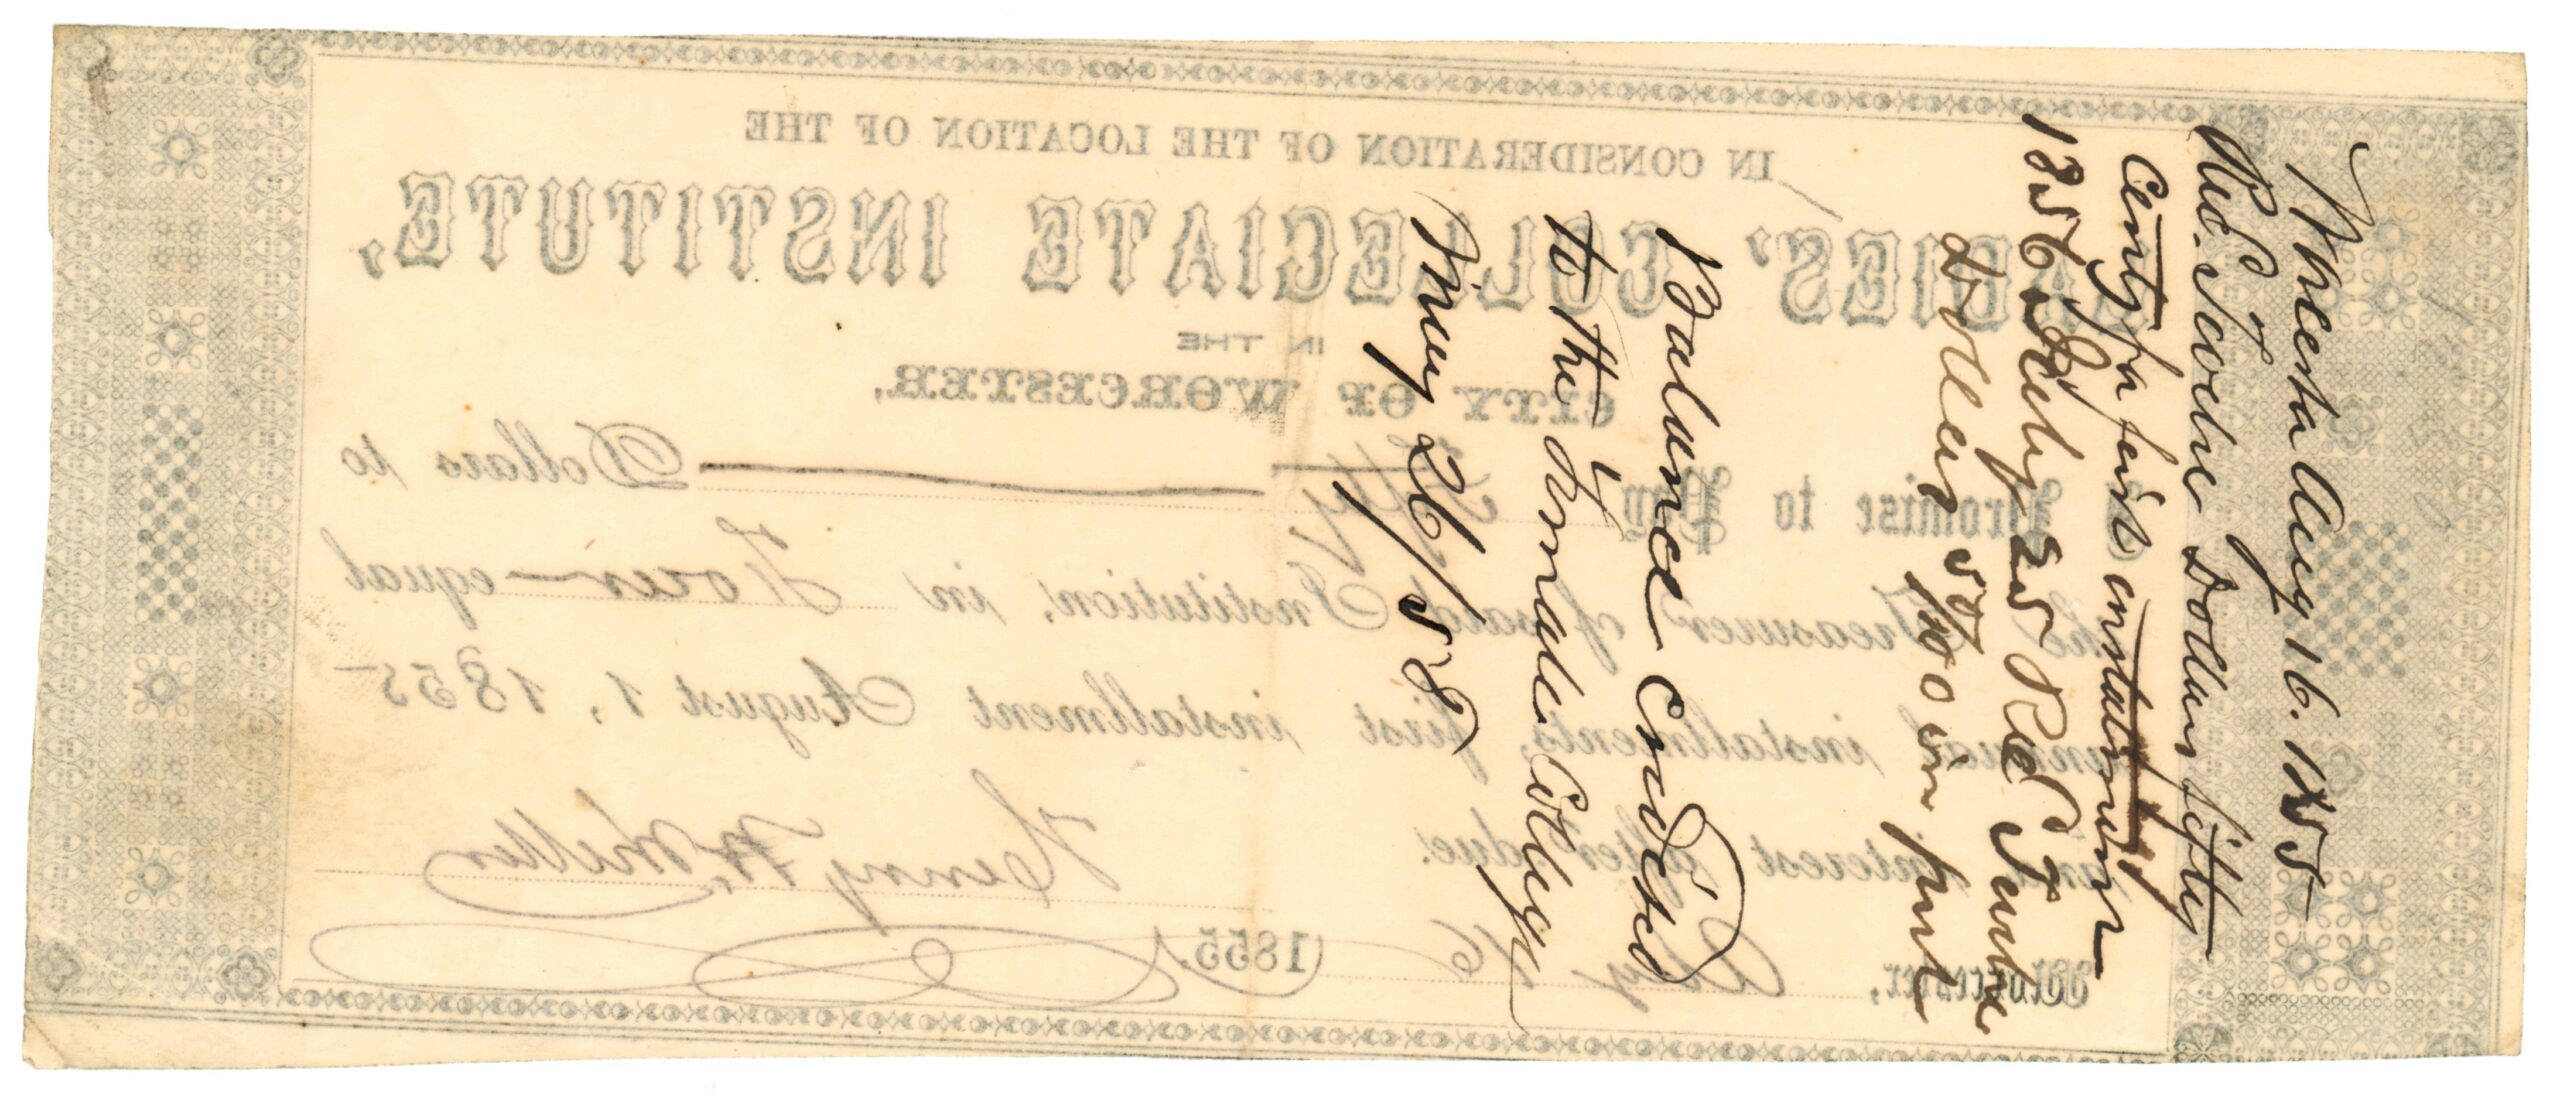 Worcester Aug 16. 1855
Rec.d Twelve Dollars fifty
Cents for first installment
1856 July 25 Recd Twelve
Dollars 50/100 in part
Balance Credited
to the Female College
May 26/58
IN CONSIDERATION OF THE LOCATION OF THE
LADIES' COLLEGIATE INSTITUTE,
IN THE
CITY OF WORCESTER,
I Promise to Pay Fifty Dollars to
the Treasurer of said Institution, in Four equal
annual installments, first installment August 1, 1855
and interest after due.
Henry W. Miller
Worcester, Aug 16 (1855.)